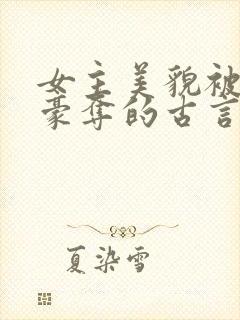 女主美貌被
豪夺的古言
夏染雪